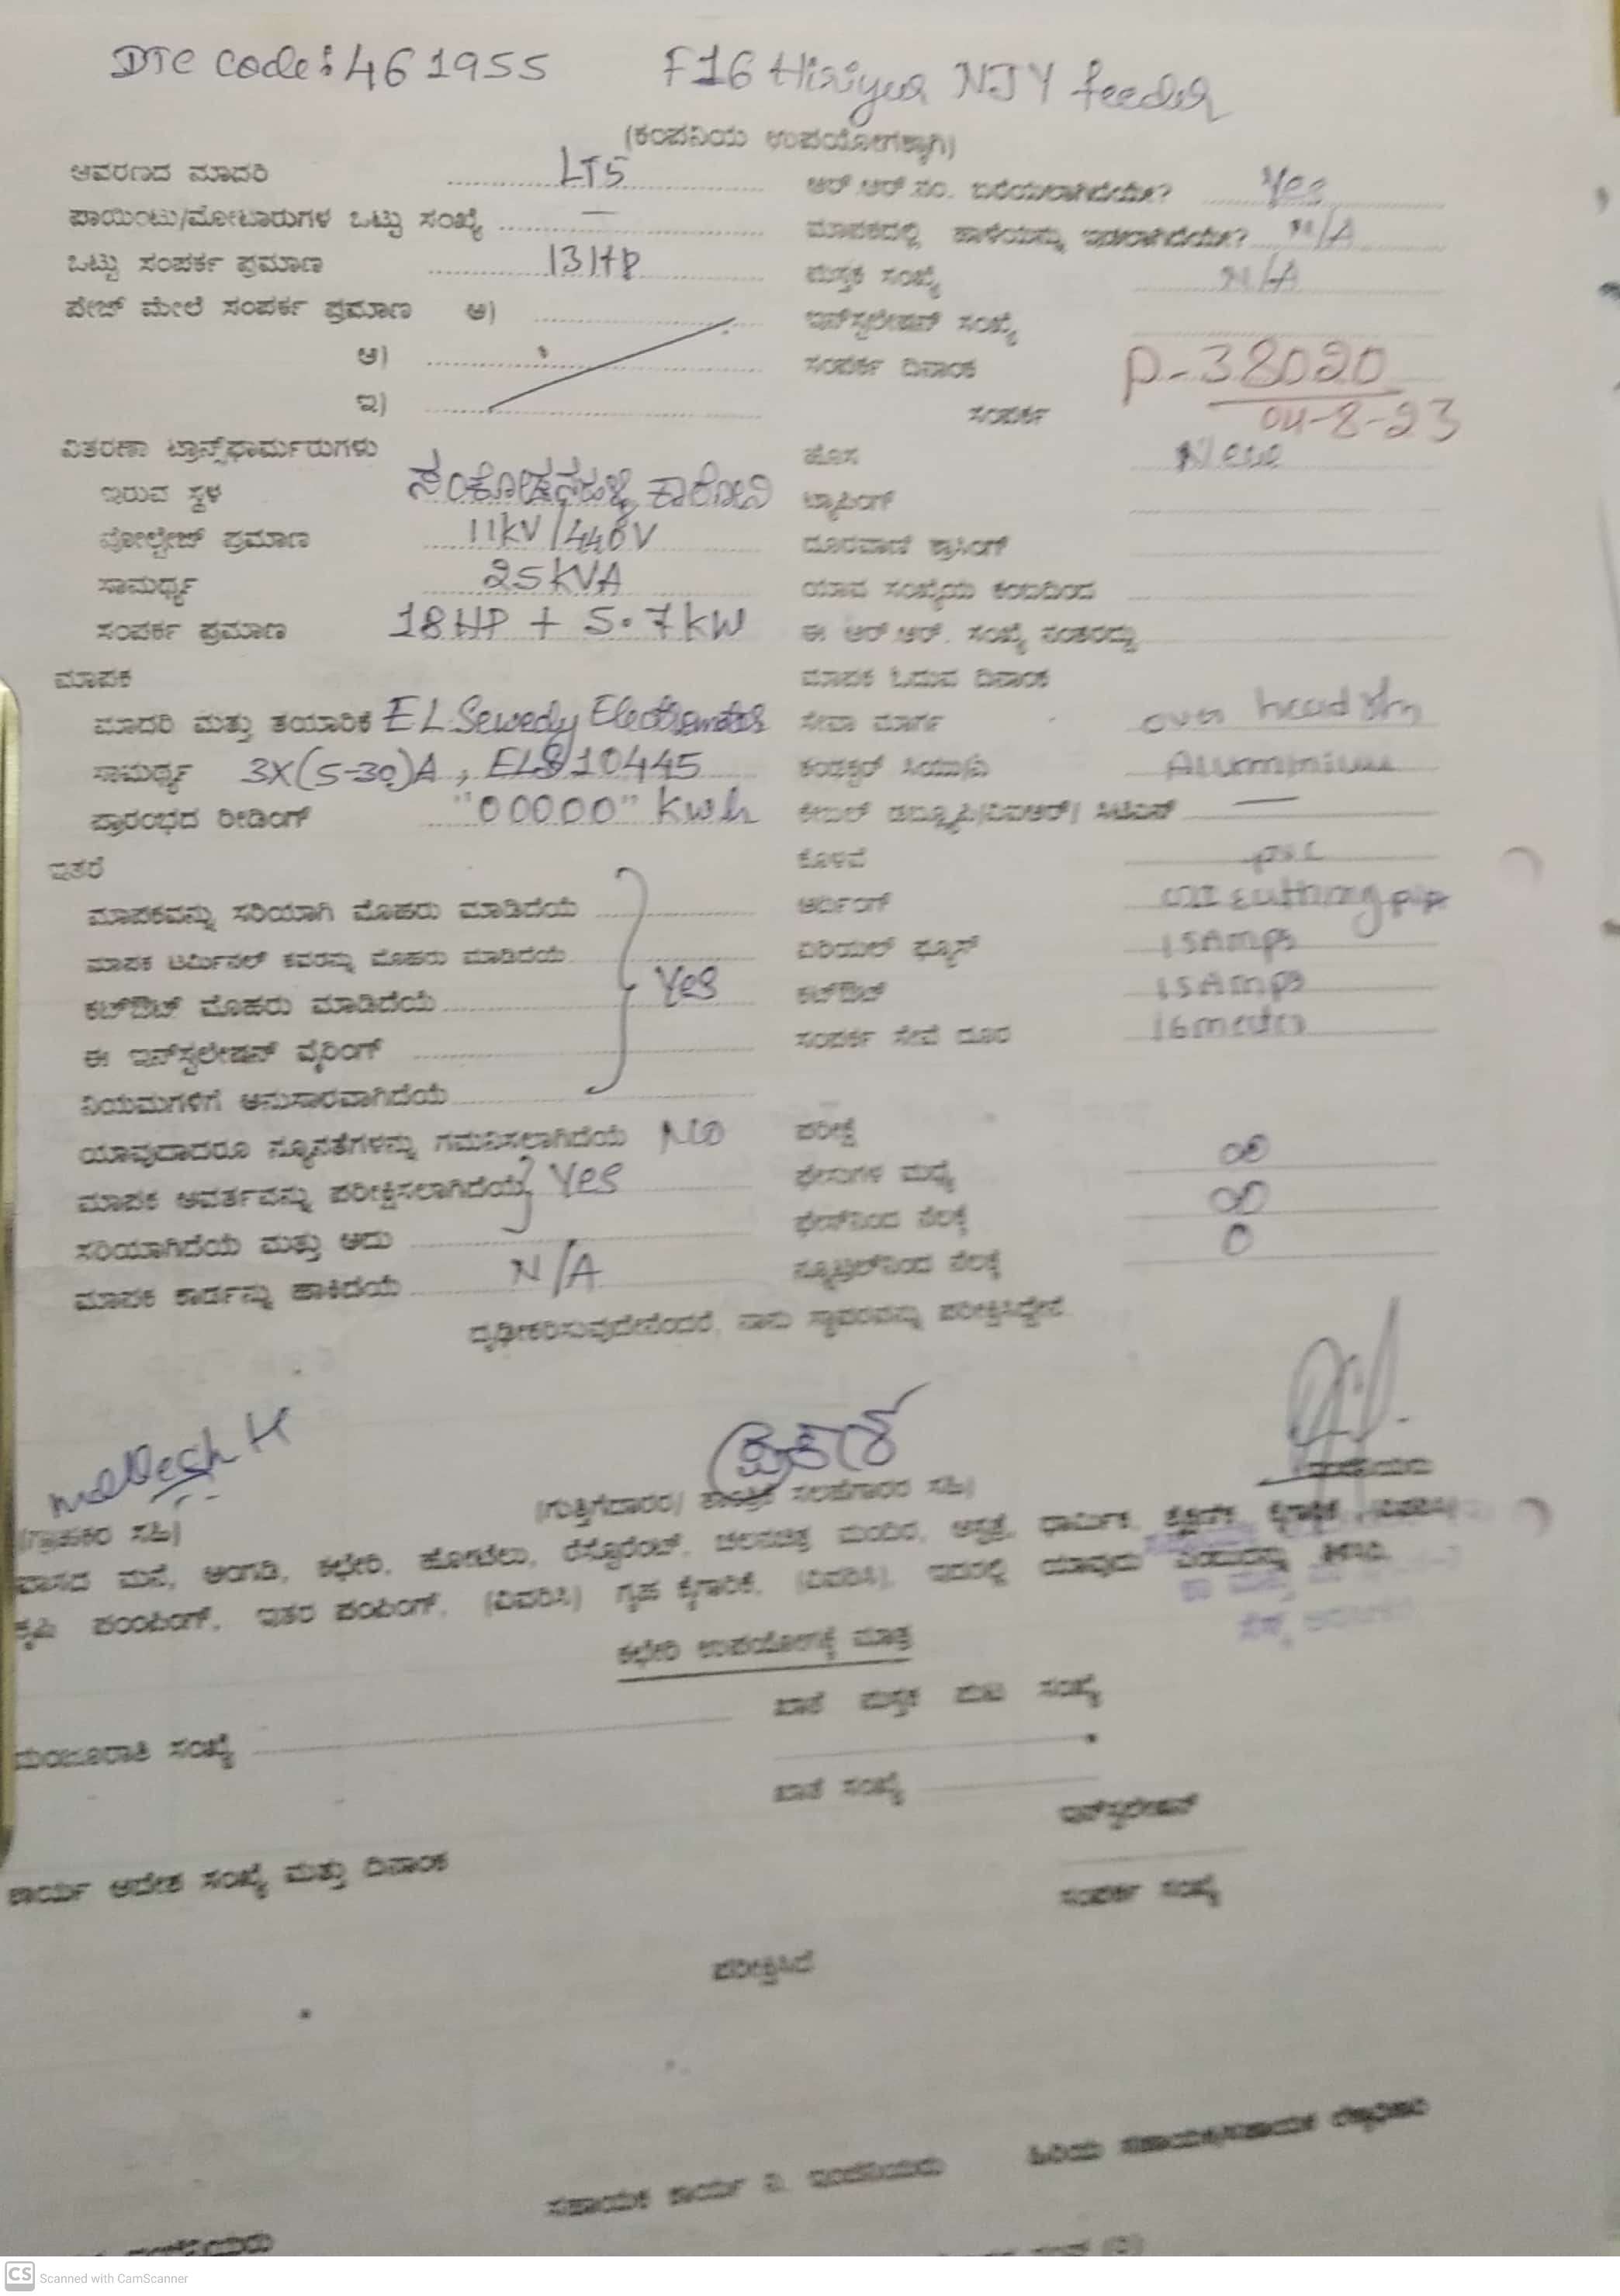 DTC code: 461955 F16 Hiriyur NJY feeder
(ಕಂಪನಿಯ ಉಪಯೋಗಕ್ಕಾಗಿ)
ಆವರಣದ ಮಾದರಿ LT5
ಪಾಯಿಂಟು/ಮೋಟಾರುಗಳ ಒಟ್ಟು ಸಂಖ್ಯೆ —
ಒಟ್ಟು ಸಂಪರ್ಕ ಪ್ರಮಾಣ 13HP
ಪೇಜ್ ಮೇಲೆ ಸಂಪರ್ಕ ಪ್ರಮಾಣ ಅ)
ಆ)
ಇ)
ವಿತರಣಾ ಟ್ರಾನ್ಸ್‌ಫಾರ್ಮರುಗಳು
ಇರುವ ಸ್ಥಳ
ವೋಲ್ಟೇಜ್ ಪ್ರಮಾಣ 11kV/440V
ಸಾಮರ್ಥ್ಯ 25kVA
ಸಂಪರ್ಕ ಪ್ರಮಾಣ 18HP + 5.7kW
ಮಾಪಕ
ಮಾದರಿ ಮತ್ತು ತಯಾರಿಕೆ EL Sewedy
ಸಾಮರ್ಥ್ಯ 3X(5-30)A, ELS10445
ಪ್ರಾರಂಭದ ರೀಡಿಂಗ್ "00000" kwh
ಇತರೆ
ಮಾಪಕವನ್ನು ಸರಿಯಾಗಿ ಮೊಹರು ಮಾಡಿದೆಯೆ
ಮಾಪಕ ಟರ್ಮಿನಲ್ ಕವರನ್ನು ಮೊಹರು ಮಾಡಿದೆಯೆ
ಕಟ್‌ಔಟ್ ಮೊಹರು ಮಾಡಿದೆಯೆ Yes
ಈ ಇನ್‌ಸ್ಟಲೇಷನ್ ವೈರಿಂಗ್
ನಿಯಮಗಳಿಗೆ ಅನುಸಾರವಾಗಿದೆಯೆ
ಯಾವುದಾದರೂ ನ್ಯೂನತೆಗಳನ್ನು ಗಮನಿಸಲಾಗಿದೆಯೆ NO
ಮಾಪಕ ಆವರ್ತವನ್ನು ಪರೀಕ್ಷಿಸಲಾಗಿದೆಯೆ Yes
ಸರಿಯಾಗಿದೆಯೆ ಮತ್ತು ಅದು
ಮಾಪಕ ಕಾರ್ಡನ್ನು ಹಾಕಿದೆಯೆ N/A
ಆರ್.ಆರ್.ನಂ. ಬರೆಯಲಾಗಿದೆಯೇ? Yes
ಮಾಪಕದಲ್ಲಿ ಹಾಳೆಯನ್ನು ಇಡಲಾಗಿದೆಯೇ? N/A
ಪುಸ್ತಕ ಸಂಖ್ಯೆ N/A
ಇನ್‌ಸ್ಟಲೇಷನ್ ಸಂಖ್ಯೆ
ಸಂಪರ್ಕ ದಿನಾಂಕ P-38020
ಸಂಪರ್ಕ 04-8-23
ಹೊಸ New
ಟ್ಯಾಪಿಂಗ್
ದೂರವಾಣಿ ಕ್ರಾಸಿಂಗ್
ಯಾವ ಸಂಖ್ಯೆಯ ಕಂಬದಿಂದ
ಈ ಆರ್.ಆರ್. ಸಂಖ್ಯೆ ನಂತರದ್ದು
ಮಾಪಕ ಓದುವ ದಿನಾಂಕ
ಸೇವಾ ಮಾರ್ಗ over head
ಕಂಡಕ್ಟರ್ ಸಿಯು/ಎ Aluminium
ಕೇಬಲ್ —
ಕೊಳವೆ pvc
ಅರ್ಥಿಂಗ್
ಏರಿಯಲ್ ಫ್ಯೂಸ್ 15Amps
ಕಟ್‌ಔಟ್ 15Amps
ಸಂಪರ್ಕ ಸೇವೆ ದೂರ 16 meters
ಪರೀಕ್ಷೆ
ಫೇಸುಗಳ ಮಧ್ಯೆ ∞
ಫೇಸ್‌ನಿಂದ ನೆಲಕ್ಕೆ ∞
ನ್ಯೂಟ್ರಲ್‌ನಿಂದ ನೆಲಕ್ಕೆ 0
ದೃಢೀಕರಿಸುವುದೇನೆಂದರೆ, ನಾನು ಸ್ಥಾವರವನ್ನು ಪರೀಕ್ಷಿಸಿದ್ದೇನೆ.
ಪ್ರಕಾಶ
(ಗ್ರಾಹಕರ ಸಹಿ) (ಗುತ್ತಿಗೆದಾರರ/ ತಾಂತ್ರಿಕ ಸಲಹೆಗಾರರ ಸಹಿ)
ವಾಸದ ಮನೆ, ಅಂಗಡಿ, ಕಛೇರಿ, ಹೋಟೆಲು, ರೆಸ್ಟೊರೆಂಟ್, ಚಲನಚಿತ್ರ ಮಂದಿರ, ಆಸ್ಪತ್ರೆ, ಧಾರ್ಮಿಕ, ಶೈಕ್ಷಣಿಕ, ಕೈಗಾರಿಕೆ, (ವಿವರಿಸಿ)
ಕೃಷಿ ಪಂಪಿಂಗ್, ಇತರ ಪಂಪಿಂಗ್, (ವಿವರಿಸಿ) ಗೃಹ ಕೈಗಾರಿಕೆ, (ವಿವರಿಸಿ), ಇದರಲ್ಲಿ ಯಾವುದು ಎಂಬುದನ್ನು
ಕಛೇರಿ ಉಪಯೋಗಕ್ಕೆ ಮಾತ್ರ
ಮಂಜೂರಾತಿ ಸಂಖ್ಯೆ ಖಾತೆ ಪುಸ್ತಕ ಪುಟ ಸಂಖ್ಯೆ
ಖಾತೆ ಸಂಖ್ಯೆ
ಇನ್‌ಸ್ಟಲೇಷನ್
ಕಾರ್ಯ ಆದೇಶ ಸಂಖ್ಯೆ ಮತ್ತು ದಿನಾಂಕ
ಸಂಪರ್ಕ ಸಂಖ್ಯೆ
ಪರೀಕ್ಷಿಸಿದೆ
ಸಹಾಯಕ ಕಾರ್ಯ ನಿ. ಇಂಜಿನಿಯರು
CS Scanned with CamScanner